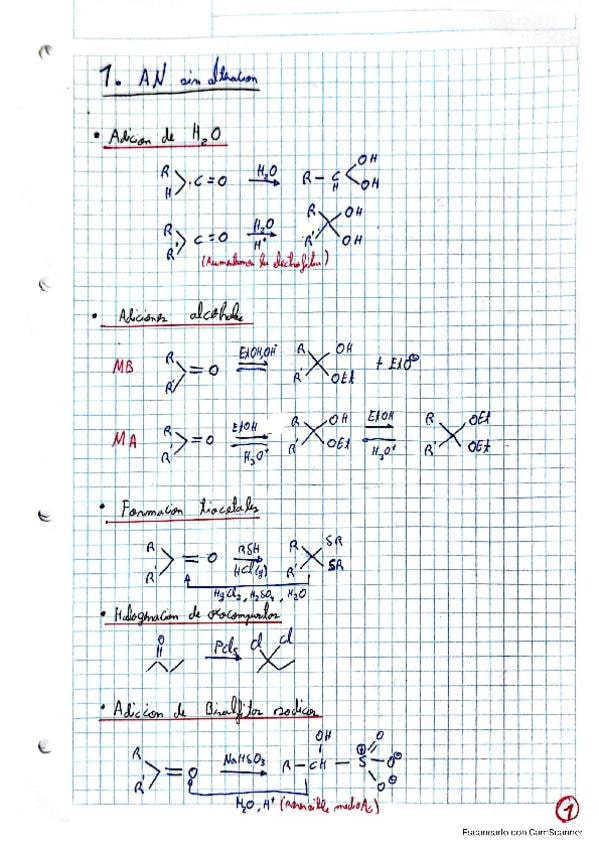 1. AN sin alteracion
• Adicion de H₂O
R H C=O H₂O R-CH OH OH
R R' C=O H₂O H⁺ R R' OH OH
(Aumentamos la electrofilia)
• Adiciones alcoholes
MB R R' =O EtOH, OH⁻ R R' OH OEt + EtO⊖
MA R R' =O EtOH H₃O⁺ R R' OH OEt EtOH H₃O⁺ R R' OEt OEt
• Formacion tioacetales
R R' =O RSH HCl(g) R R' SR SR
HgCl₂, H₂SO₄, H₂O
• Halogenacion de oxocompuestos
O PCl₅ Cl Cl
• Adiccion de Bisulfitos sodicos
R R' =O NaHSO₃ R-CH OH S ⊕ O O⊖ O⊖
H₂O, H⁺ (Reversible medio Ac)
1
Escaneado con CamScanner